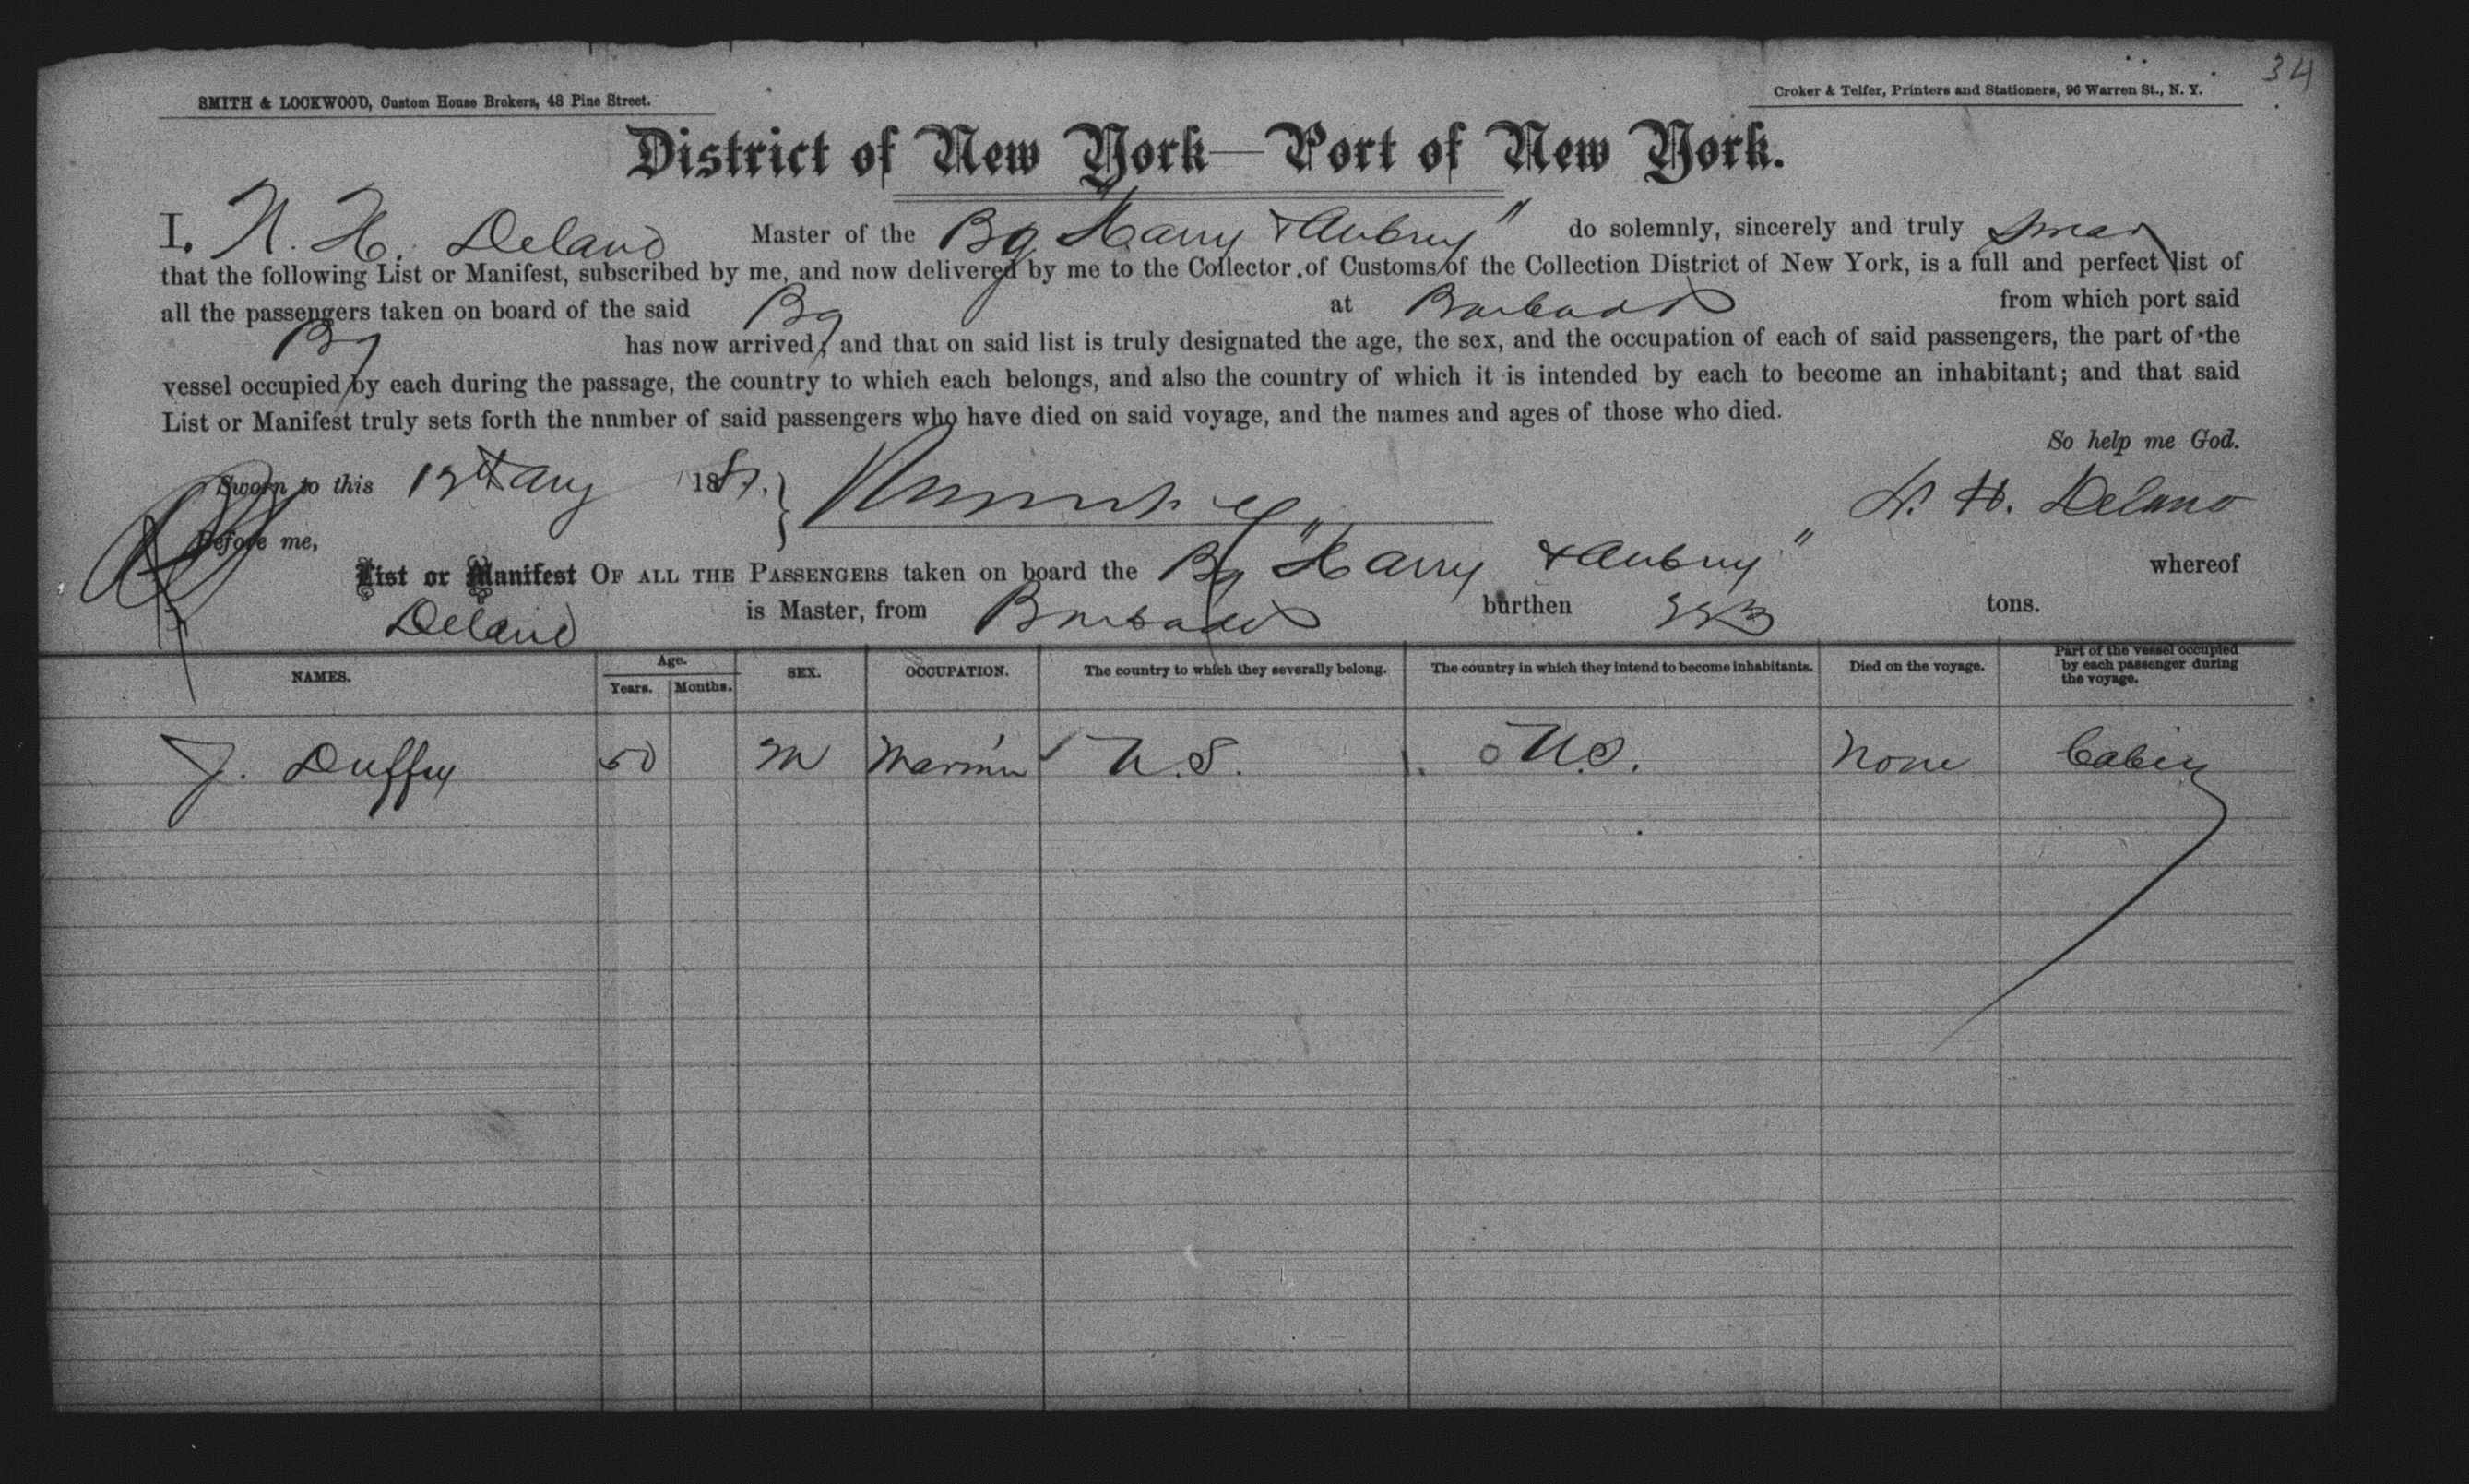 34
SMITH & LOCKWOOD, Custom House Brokers, 48 Pine Street.
Croker & Telfer, Printers and Stationers, 96 Warren St., N. Y.
District of New York—Port of New York.
I, N. H. Deland Master of the Bg "Harry & Aubrey" do solemnly, sincerely and truly swear
that the following List or Manifest, subscribed by me, and now delivered by me to the Collector of Customs of the Collection District of New York, is a full and perfect list of
all the passengers taken on board of the said Bg at Barbados from which port said
Bg has now arrived; and that on said list is truly designated the age, the sex, and the occupation of each of said passengers, the part of the
vessel occupied by each during the passage, the country to which each belongs, and also the country of which it is intended by each to become an inhabitant; and that said
List or Manifest truly sets forth the nnmber of said passengers who have died on said voyage, and the names and ages of those who died.
So help me God.
Sworn to this Aug 188
Before me,
List or Manifest OF ALL THE PASSENGERS taken on board the Bg "Harry & Aubrey" whereof
Deland is Master, from Barbados burthen tons.
NAMES. Age. Years. Months. SEX. OCCUPATION. The country to which they severally belong. The country in which they intend to become inhabitants. Died on the voyage. Part of the vessel occupied by each passenger during the voyage.
J. Duffey 50 M Mariner U.S. U.S. None Cabin